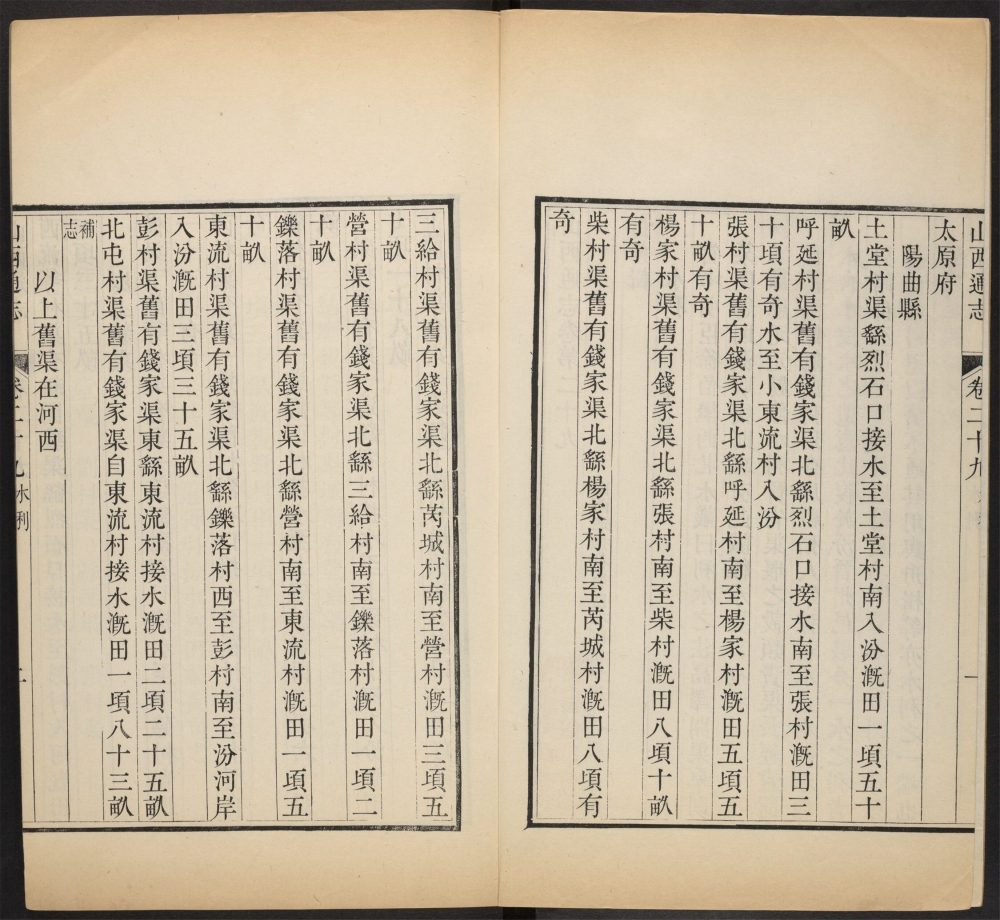 山西通志
卷二十九
太原府
陽曲縣
土堂村渠繇烈石口接水至土堂村南入汾漑田一頃五十
畝
呼延村渠舊有錢家渠北繇烈石口接水南至張村漑田三
十頃有奇水至小東流村入汾
張村渠舊有錢家渠北繇呼延村南至楊家村漑田五頃五
十畝有奇
楊家村渠舊有錢家渠北繇張村南至柴村漑田八頃十畝
有奇
柴村渠舊有錢家渠北繇楊家村南至芮城村漑田八頃有
奇
三給村渠舊有錢家渠北繇芮城村南至營村漑田三頃五
十畝
營村渠舊有錢家渠北繇三給村南至鑠落村漑田一頃二
十畝
鑠落村渠舊有錢家渠北繇營村南至東流村漑田一頃五
十畝
東流村渠舊有錢家渠北繇鑠落村西至彭村南至汾河岸
入汾漑田三頃三十五畝
彭村渠舊有錢家渠東繇東流村接水漑田二頃二十五畝
北屯村渠舊有錢家渠自東流村接水漑田一頃八十三畝
補
志
以上舊渠在河西
山西通志
卷二十九 水利